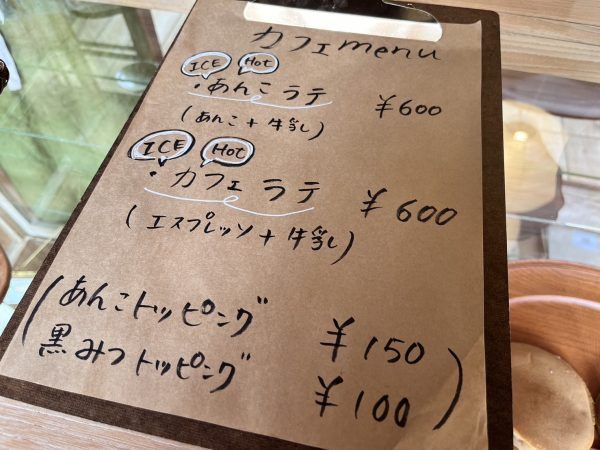 カフェmenu
ICE Hot
・あんこラテ ¥600
(あんこ+牛乳)
ICE Hot
・カフェラテ ¥600
(エスプレッソ+牛乳)
(あんこトッピング ¥150
黒みつトッピング ¥100)